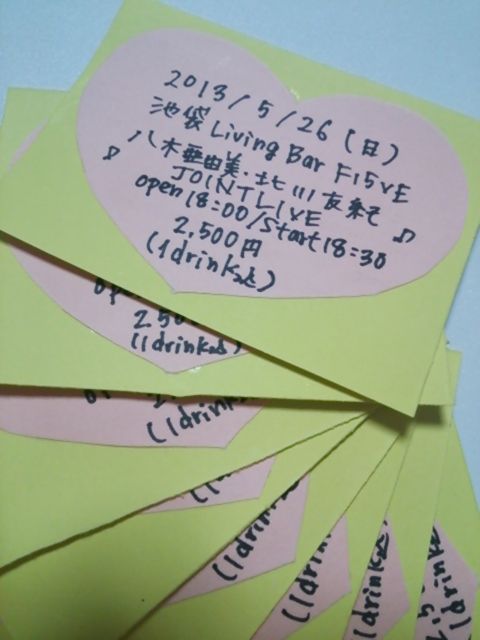 2013/5/26(日)
池袋 Living Bar FI5VE
八木亜由美・北川友紀
JOINT LIVE
open 18:00/Start 18:30
2,500円
(1drink込)
ope
2,50
(1drink込)
(1drink
(1drink
(1drin
(1drink込
drink